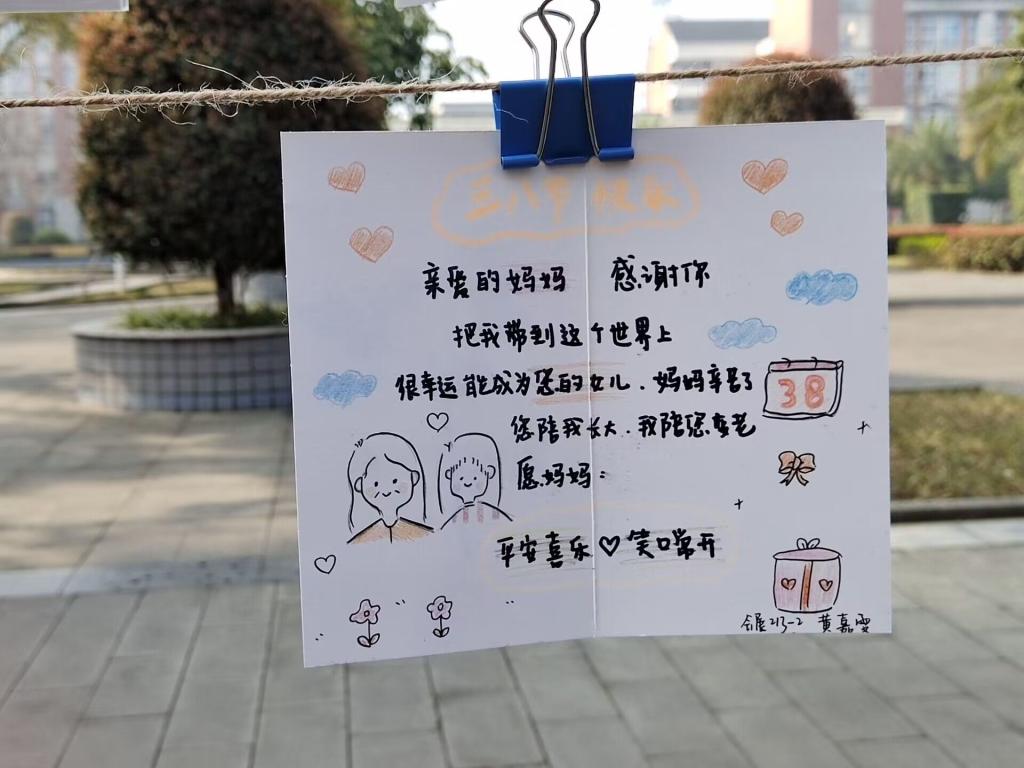 三八节快乐
亲爱的妈妈 感谢你
把我带到这个世界上
很幸运能成为您的女儿.妈妈辛苦了
您陪我长大.我陪您变老
愿妈妈:
平安喜乐♡笑口常开
38
213-2 黄嘉雯